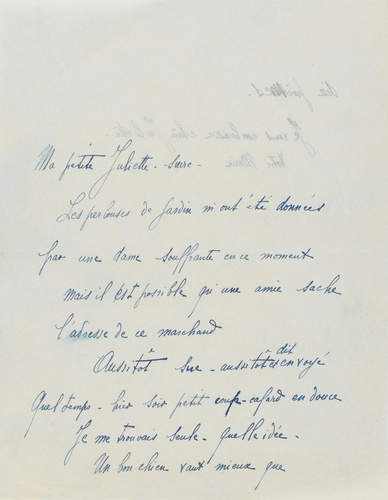 Ma petite Juliette - sucre -
Les perlouses de Jardin m'ont été données
par une dame souffrante en ce moment
mais il est possible qu'une amie sache
l'adresse de ce marchand
Aussitôt sue - aussitôt dit et envoyé
Quel temps - hier soir petit coup - cafard en douce
Je me trouvais seule - quelle idée -
Un bon chien vaut mieux que